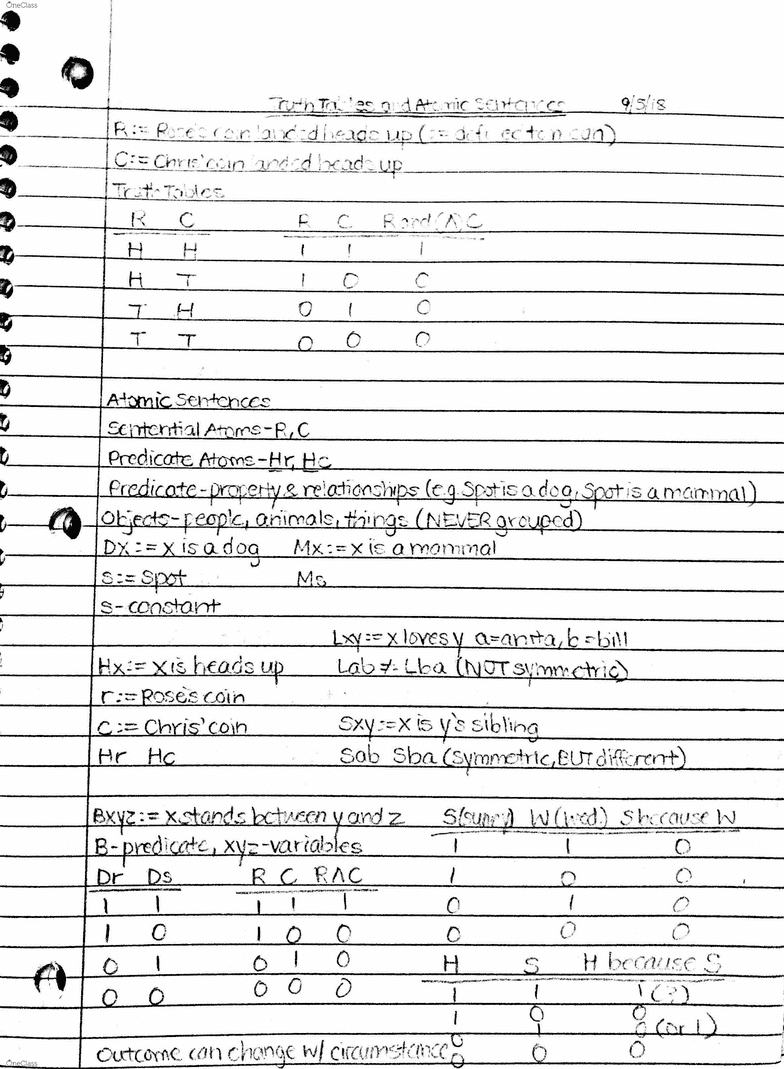 OneClass
Truth Tables and Atomic Sentences 9/5/18
R:= Rose's coin landed heads up (:= definection can)
C:= Chris' coin landed heads up
Truth Tables
R C R C R and (∧) C
H H 1 1 1
H T 1 0 0
T H 0 1 0
T T 0 0 0
Atomic Sentences
Sentential Atoms-R, C
Predicate Atoms-Hr, Hc
Predicate-property & relationships (e.g. Spot is a dog, Spot is a mammal)
Objects-people, animals, things (NEVER grouped)
Dx:= x is a dog Mx:= x is a mammal
s:= Spot Ms
s-constant
Lxy:= x loves y a=anita, b=bill
Hx:= x is heads up Lab ≠ Lba (NOT symmetric)
r:= Rose's coin
c:= Chris' coin Sxy:= x is y's sibling
Hr Hc Sab Sba (symmetric, BUT different)
Bxyz:= x stands between y and z S(sunny) W(wed.) S because W
B-predicate, xyz-variables 1 1 0
Dr Ds R C R∧C 1 0 0
1 1 1 1 1 0 1 0
1 0 1 0 0 0 0 0
0 1 0 1 0 H S H because S
0 0 0 0 0 1 1 1(?)
1 0 0
0 1 0 (or 1)
Outcome can change w/ circumstance 0 0 0
OneClass